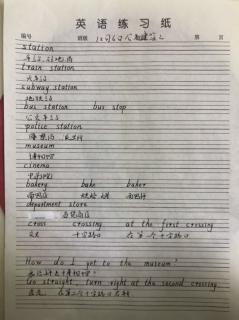 英语练习纸
编号 班级 12月6日 第 页
station
train station
火车站
subway station
地铁站
bus station bus stop
公交车站
police station
museum
博物馆
cinema
电影院
bakery bake baker
面包店 烘焙 面包师
department store
百货商店
cross crossing at the first crossing
十字路口 在第一个十字路口
How do I get to the museum?
Go straight, turn right at the second crossing.
直走, 在第二个十字路口右转